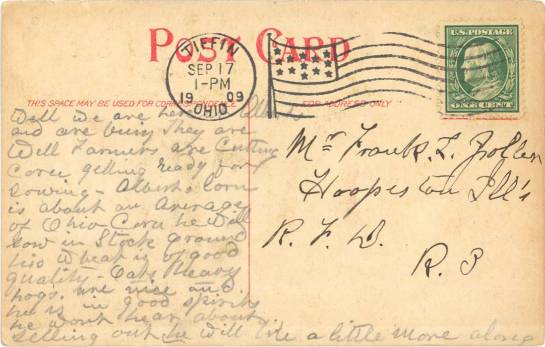 POST CARD
TIFFIN
SEP 17
1-PM
1909
OHIO
U.S. POSTAGE
ONE CENT
THIS SPACE MAY BE USED FOR CORRESPONDENCE
FOR ADDRESS ONLY
Well we are here
and are busy They are
Well Farmers are Cutting
Corn getting ready for
Sowing - Alberts Corn
is about an average
of Ohio Corn he will
sow in Stock ground
his Wheat is of good
quality - Oats Heavy
hogs are nice and
he is in good spirits
he wont hear about
selling out he will like a little more along
Mr Frank L.
Hoopeston Ill's
R. F. D.
R. 3